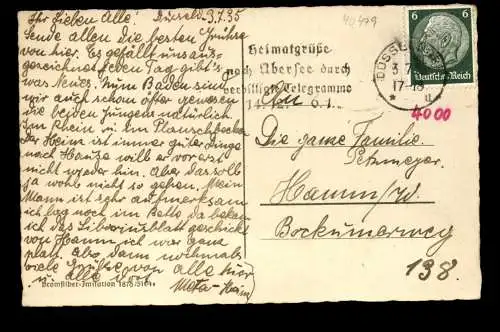 Ihr Lieben Alle! Düsseld 3.7.35
Sende allen die besten Grüße
von hier. Es gefällt uns aus-
gezeichnet jeden Tag gibt's
was Neues. Zum Baden sind
wir auch schon öfter gewesen
die beiden Jungens natürlich
Im Rhein u. im Planschbecken
Der Heini ist immer guter Dinge
nach Hause will er vorerst
nicht wieder hin. Aber das soll
ja wohl nicht so gehen. Mein
Mann ist sehr aufmerksam
ich lag noch im Bette da bekam
ich das Liboriusblatt geschickt
von Hamm ich war ganz
platt. Also dann nochmals
viele Grüße von alle hier
u. alle dort
Meta-Heini
Bromsilber-Imitation 1878/3164
40479
Heimatgrüße
nach Übersee durch
verbilligte Telegramme
14.12. 6.1.
DÜSSELDORF
3.7.
17-18
6 6
Deutsches Reich
4000
An
Die ganze Familie
Petzmeyer
Hamm/W.
Bockumerweg
138.